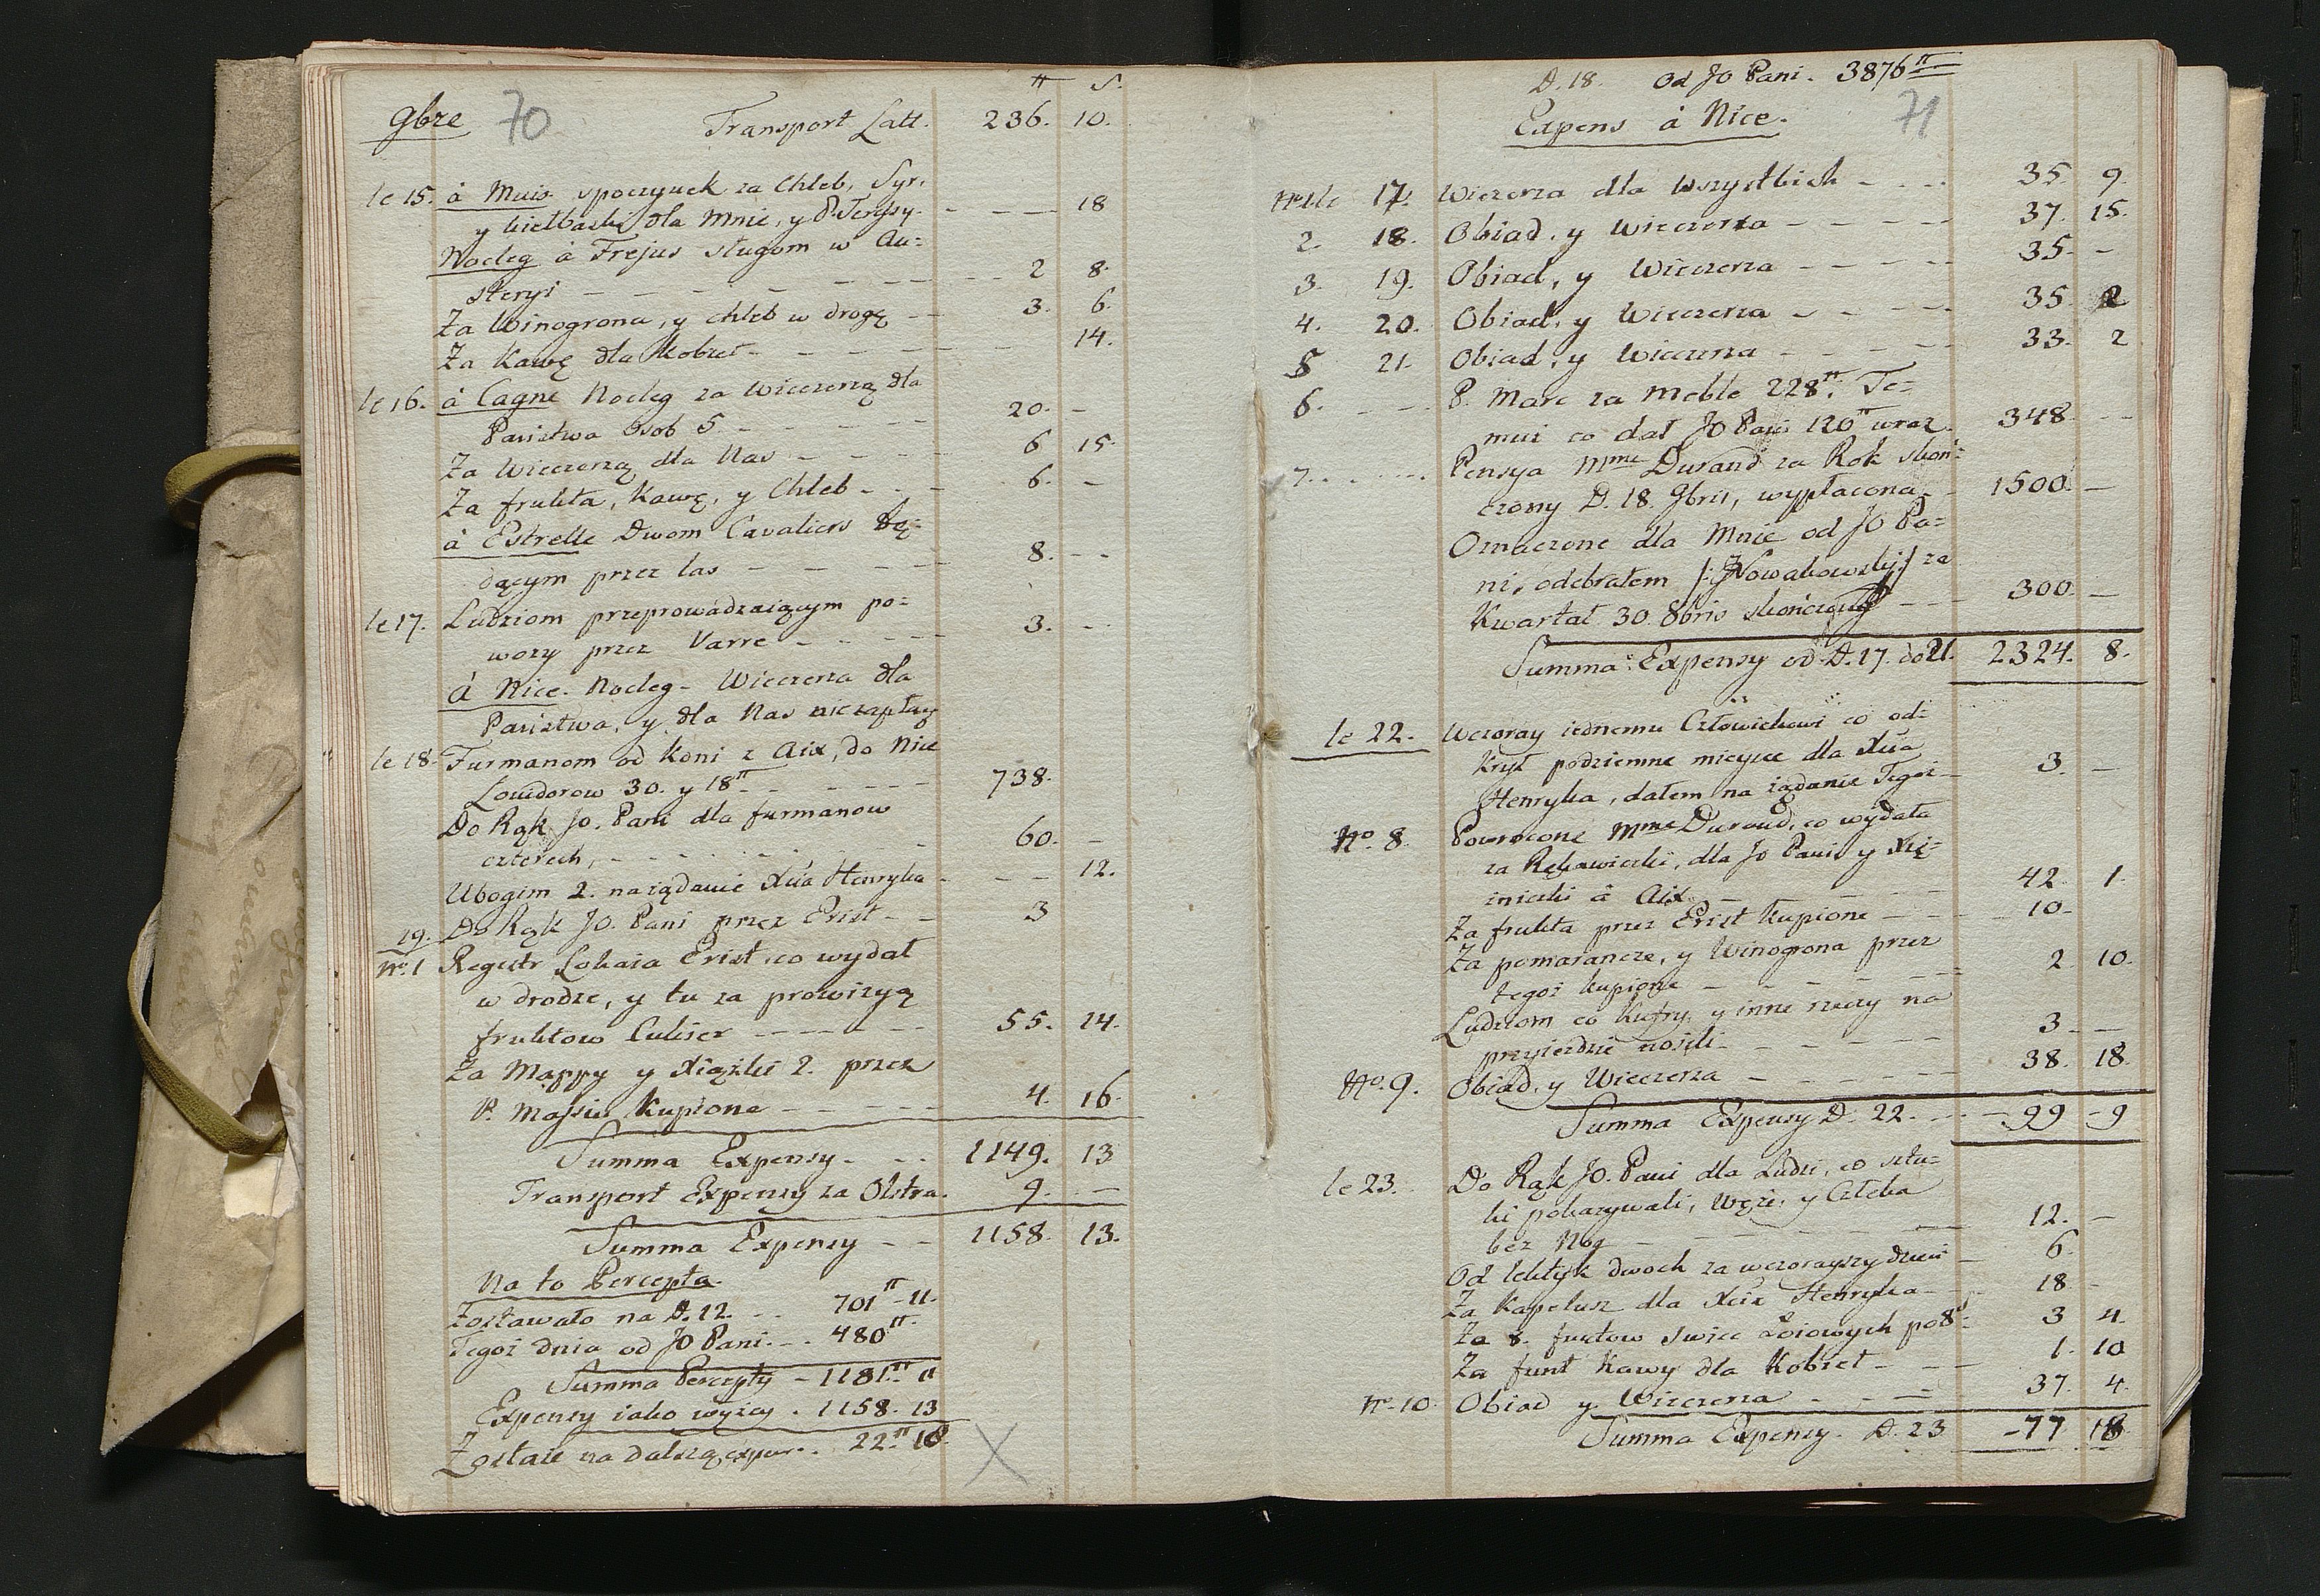 ₶ S.
9bre 70 Transport Latt. 236. 10.
le 15. à Muis spoczynek za Chleb, Syr,
y kiełbaski dla Mnie, y P. Teresy. - - - 18
Nocleg à Frejus sługom w Au=
steryi - - - - - - 2 8.
Za Winogrona, y chleb w drogę - - 3. 6.
Za Kawę dla Kobiet - - - - - 14.
le 16. à Cagne Nocleg za Wieczerzą dla
Państwa Osob 5 - - - - - 20. -
Za Wieczerzą dla Nas - - - - 6 15.
Za frukta, Kawę, y Chleb - - - 6. -
à Estrelle Dwom Cavaliers Bę=
dącym przez las - - - - - 8. - -
le 17. Ludziom przeprowadzaiącym po=
wozy przez Varre - - - - 3. - -
à Nice. Nocleg - Wieczerza dla
Państwa, y dla Nas niezapłac
le 18. Furmanom od Koni z Aix, do Nice
Louidorow 30. y 18₶ - - - - - 738.
Do Rąk Jo. Pani dla furmanow
czterech, - - - - - - 60. -
Ubogim 2. na żądanie Xcia Henryka - - - 12.
19. Do Rąk JO. Pani przez Erist - - 3
No. 1 Regestr Lokaia Erist, co wydał
w drodze, y tu za prowizyą
fruktow Cukier - - - - - - 55. 14.
Za Mappy y Xiążki 2. przez
P. Massiu Kupione - - - - - 4. 16.
Summa Expensy - - - 1149. 13
Transport Expensy za Olstra. 9. -
Summa Expensy - - 1158. 13.
Na to Percepta.
Zostawało na D. 12. - - 701₶ - 11.
Tegoż dnia od JO Pani - - . 480₶.
Summa Percepty - 1181₶. 11
Expensy iako wyżey . 1158. 13
Zostaie na dalszą expens. . 22₶ 18.
D. 18. Od JO Pani. 3876₶
Expens à Nice. 71
No. 1 le 17. Wieczerza dla Wszystkich - - - 35. 9.
2. 18. Obiad, y Wieczerza - - - - - 37. 15.
3. 19. Obiad, y Wieczerza - - - - - 35. -
4. 20. Obiad, y Wieczerza - - - - 35 2
5 21. Obiad, y Wieczerza - - - - - 33. 2
6. - - - P. Marc za meble 228₶. Te=
muż co dał JO Pani 120₶ wraz. 348. - -
7. . - - - - Pensya Mme Durand za Rok skoń=
czony D. 18. 9bris, wypłacona - 1500. -
Oznaczone dla Mnie od JO Pa=
ni, odebrałem /: Nowakowski :/ za
Kwartał 30. 8bris skończony - - - 300. -
Summa Expensy od D. 17. do 21. 2324. 8.
le 22. Wczoray iednemu Człowiekowi co od=
Krył podziemne mieysce dla Xcia
Henryka, dałem na żądanie Tegoż - 3. -
No. 8. Powrocone Mme Durand, co wydała
za Rękawiczki, dla Jo Pani y Xię=
żniczki à Aix - - - - - - 42. 1.
Za frukta przez Erist Kupione - - - 10 -
Za pomarańcze, y Winogrona przez
tegoż kupione - - - - - 2 10.
Ludziom co Kufry, y inne rzeczy na
przyiezdzie nosili - - - - - - 3 - -
No. 9. Obiad, y Wieczerza - - - - - - 38. 18.
Summa Expensy D. 22. - - - 99 - 9
le 23. Do Rąk JO. Pani dla Ludzi, co sztu=
ki pokazywali, Węże, y Człeka
bez Nog - - - - - - - 12. -
Od lektyk dwoch za wczorayszy dzień - 6.
Za Kapelusz dla Xcia Henryka - - - 18 -
Za 8. funtow swiec Łoiowych po 8s - 3 4.
Za funt Kawy dla Kobiet - - - 1. 10
No. 10. Obiad y Wieczerza - - - - 37. 4.
Summa Expensy. D. 23 - 77 18